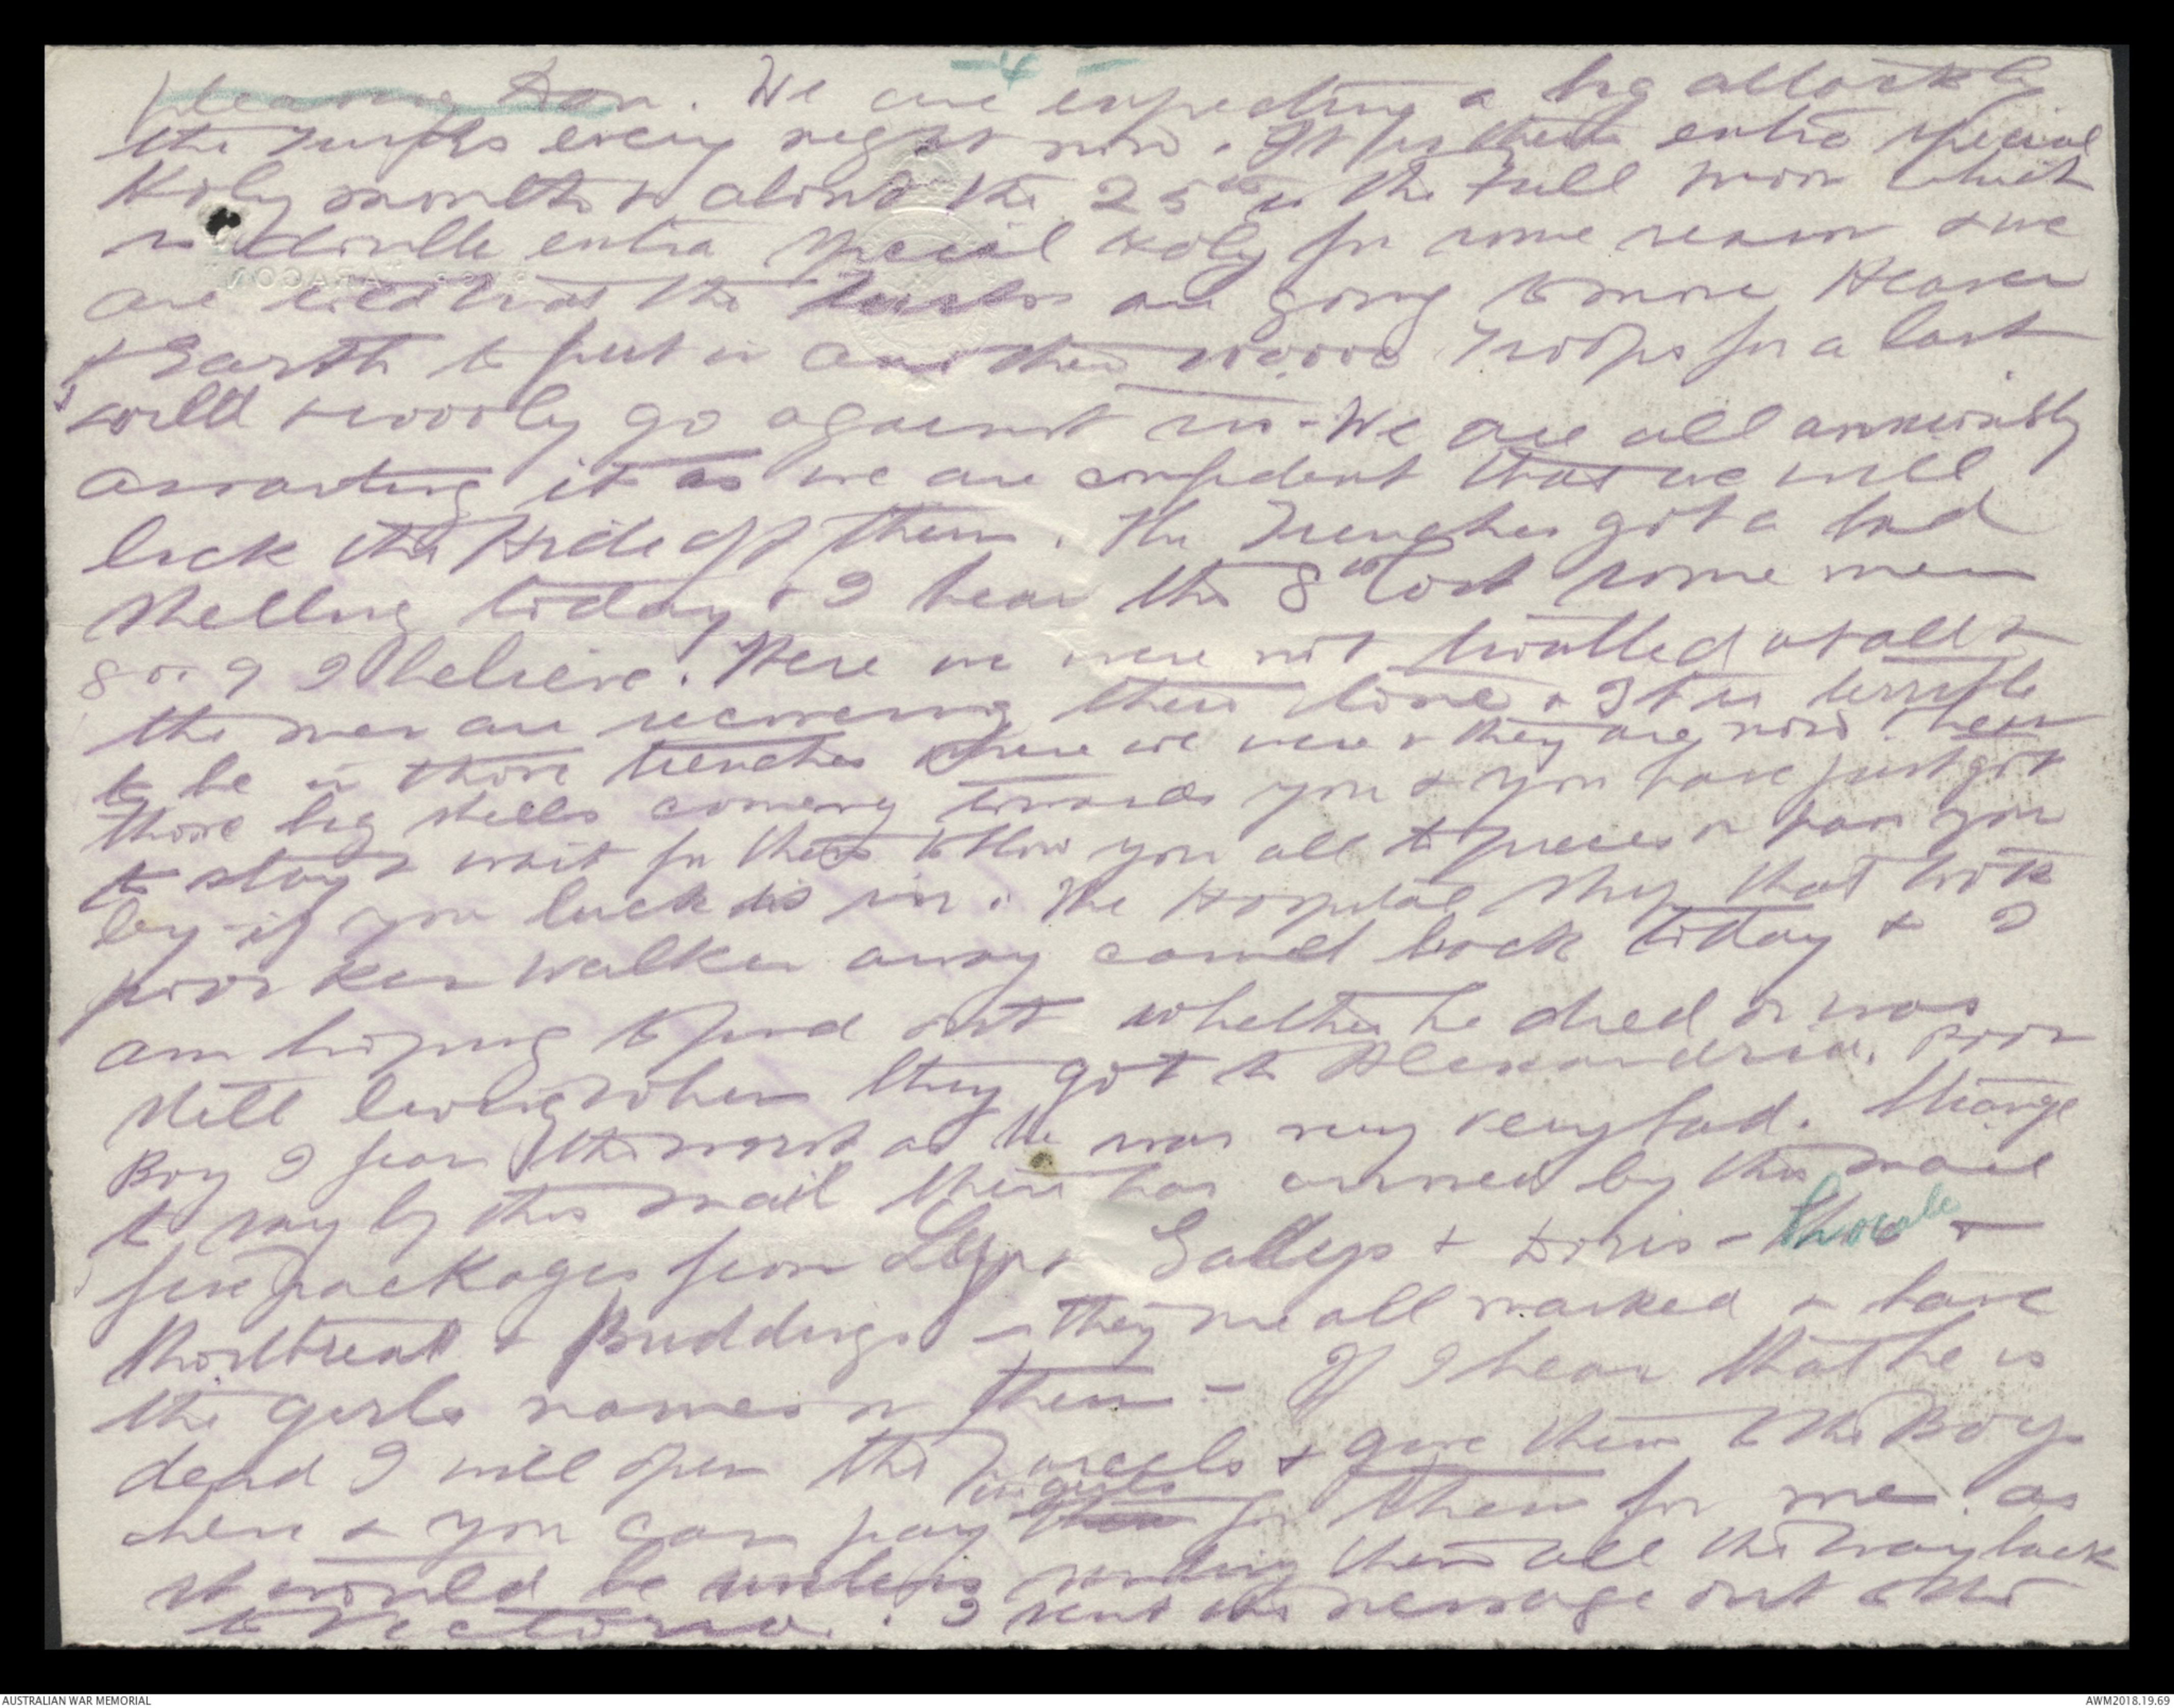 - 4 -
pleasing Don. We are expecting a big attack by
the Turks every night now. It is their extra special
Holy month & about the 25th is the Full moon which
is double extra special Holy for some reason & we
are told that the Turks are going to move Heaven
& Earth to put in another 100,000 Troops for a last
wild & wooly go against us - We are all anxiously
awaiting it as we are confident that we will
lick the Hide off them. The Trenches got a bad
shelling today & I hear the 8th lost some men
8 or 9 I believe. Here we were not troubled at all &
the men are recovering their tone. It is terrible
to be in those trenches where we were & they are now. hear
those big shells coming towards you & you have just got
to stay & wait for them to blow you all to pieces or pass you
by - if you luck is in. The Hospital Ship that took
poor Ken Walker away comed back today & I
am hoping to find out whether he died or was
still living when they got to Alexandria. Poor
Boy I fear the worst as he was very very bad. Strange
to say by this mail there has arrived by this mail
five packages from Gallys & Doris - Chocolate
Shortbread & Puddings - They are all marked & have
the girls names on them - If I hear that he is
dead I will open the parcels & give them to the Boys
here & you can pay the girls for them for me as
it would be useless sending them all the way back
to Victoria. I sent the message out to the
AUSTRALIAN WAR MEMORIAL
AWM2018.19.69